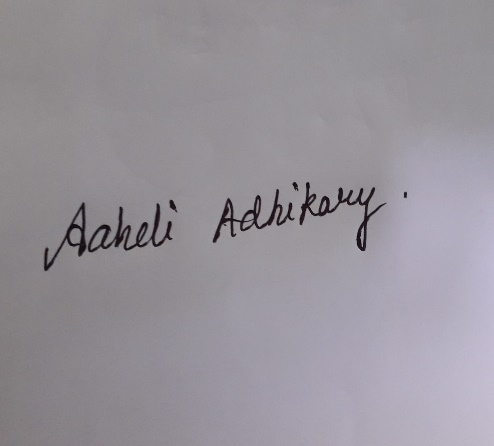 Aaheli Adhikary.